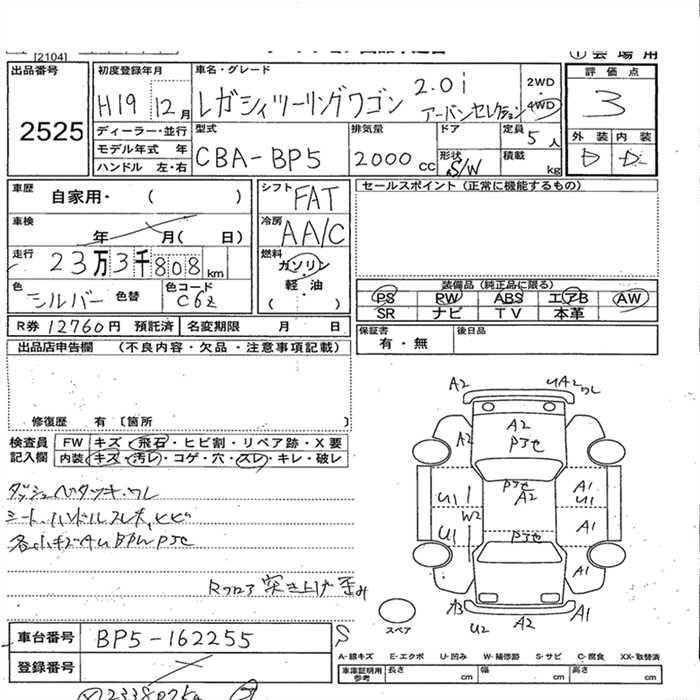 [2104]
① 会場用
出品番号 2525
初度登録年月 H19 12月
車名・グレード レガシィツーリングワゴン 2.0i アーバンセレクション
2WD・4WD
評価点 3
外装 D 内装 D
ディーラー・並行
モデル年式 年
ハンドル 左・右
型式 CBA-BP5
排気量 2000 cc
ドア
形状 S/W
定員 5人
積載 kg
車歴 自家用・( )
車検 年 月( 日)
走行 23万3千808km
色 シルバー 色替 色コード C6Z
シフト FAT
冷房 AA/C
燃料 ガソリン・軽・油 ( )
セールスポイント (正常に機能するもの)
装備品 (純正品に限る)
PS PW ABS エアB AW
SR ナビ TV 本革
R券 12760円 預託済 名変期限 月 日
保証書 有・無 後日品
出品店申告欄 (不良内容・欠品・注意事項記載)
修復歴 有 [箇所 ]
検査員記入欄
FW キズ・飛石・ヒビ割・リペア跡・X要
内装 キズ・汚レ・コゲ・穴・スレ・キレ・破レ
ダッシュベタツキ・ワレ
シート、ハンドルスレ大、ヒビ
Rフロア 突き上げ歪み
A2 UA2 ワレ
A2 A2
A2
U1 A1
U1
W2
U1 A1
A1
A3 A2 A1
U2
スペア
車台番号 BP5-162255
S
登録番号
A-線キズ E-エクボ U-凹み W-補修跡 S-サビ C-腐食 XX-取替済
車庫証明用参考 長さ cm 幅 cm 高さ cm